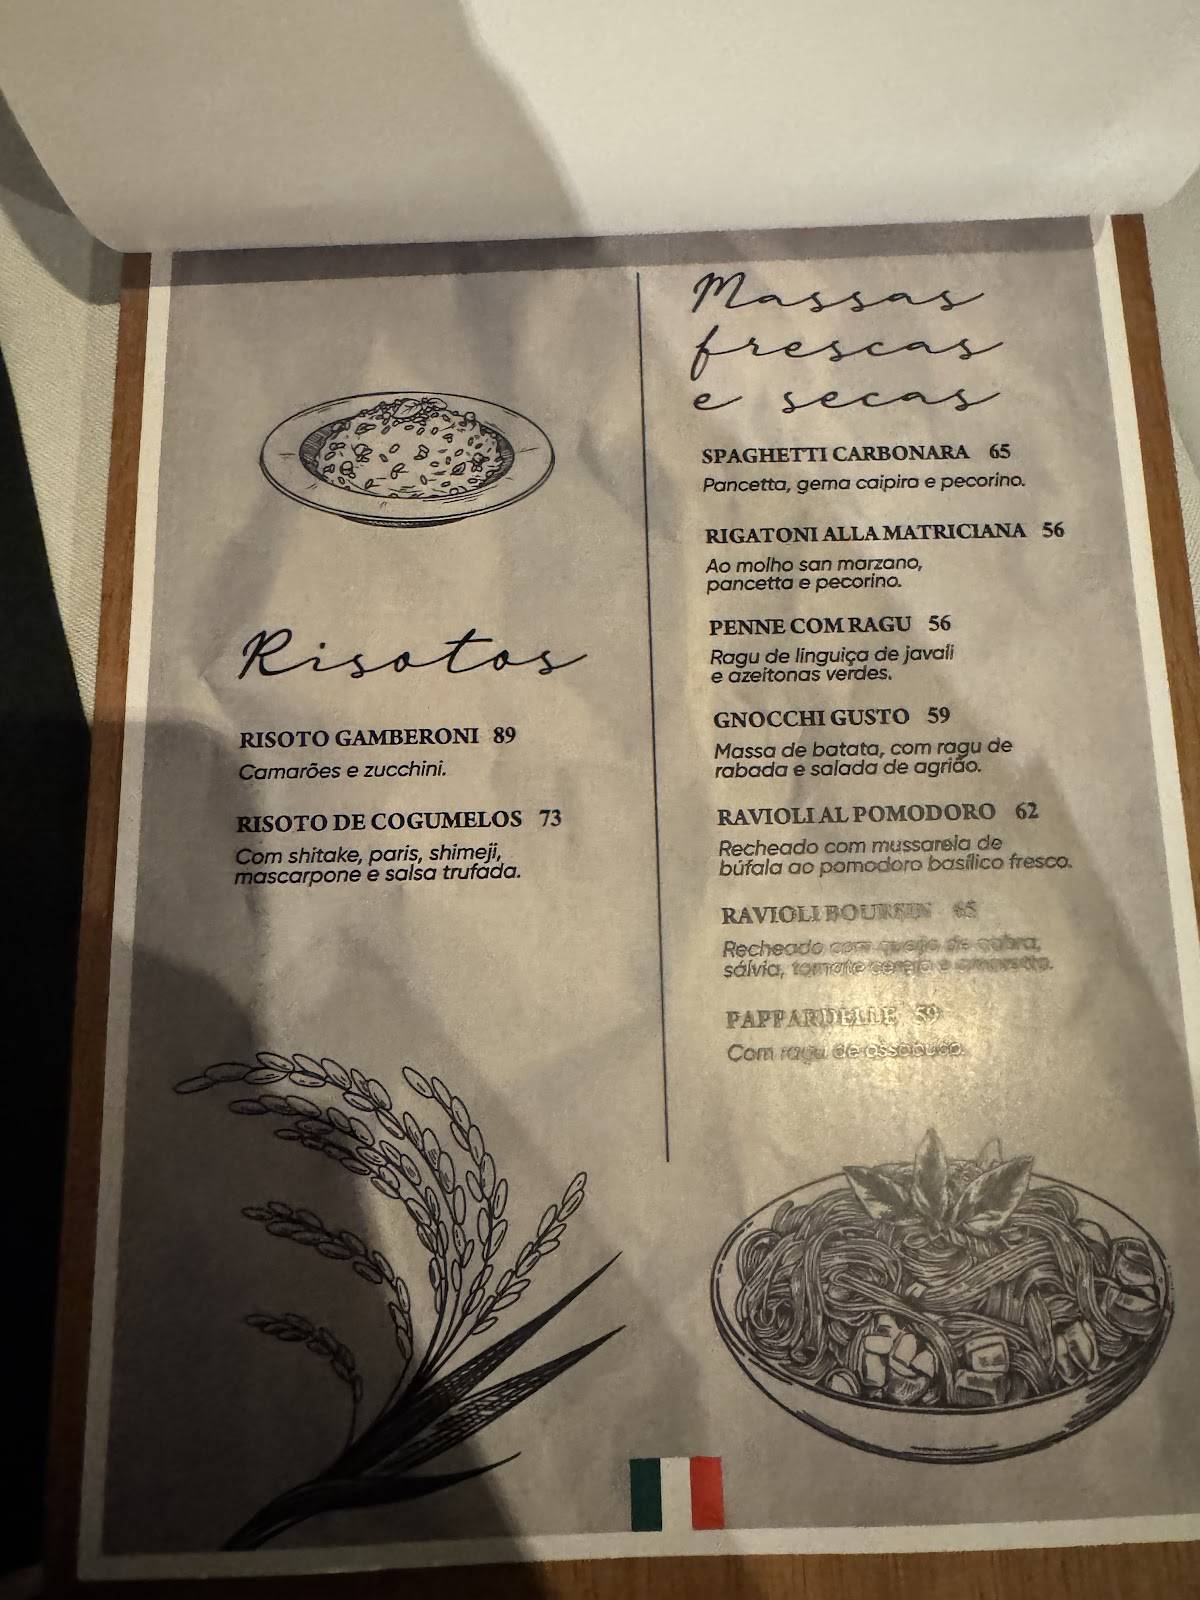 Risotos
RISOTO GAMBERONI 89
Camarões e zucchini.
RISOTO DE COGUMELOS 73
Com shitake, paris, shimeji,
mascarpone e salsa trufada.
Massas
frescas
e secas
SPAGHETTI CARBONARA 65
Pancetta, gema caipira e pecorino.
RIGATONI ALLA MATRICIANA 56
Ao molho san marzano,
pancetta e pecorino.
PENNE COM RAGU 56
Ragu de linguiça de javali
e azeitonas verdes.
GNOCCHI GUSTO 59
Massa de batata, com ragu de
rabada e salada de agrião.
RAVIOLI AL POMODORO 62
Recheado com mussarela de
búfala ao pomodoro basílico fresco.
RAVIOLI BOURSIN 65
Recheado com queijo de cabra,
sálvia, tomate cereja e amaretto.
PAPPARDELLE 59
Com ragu de ossobuco.